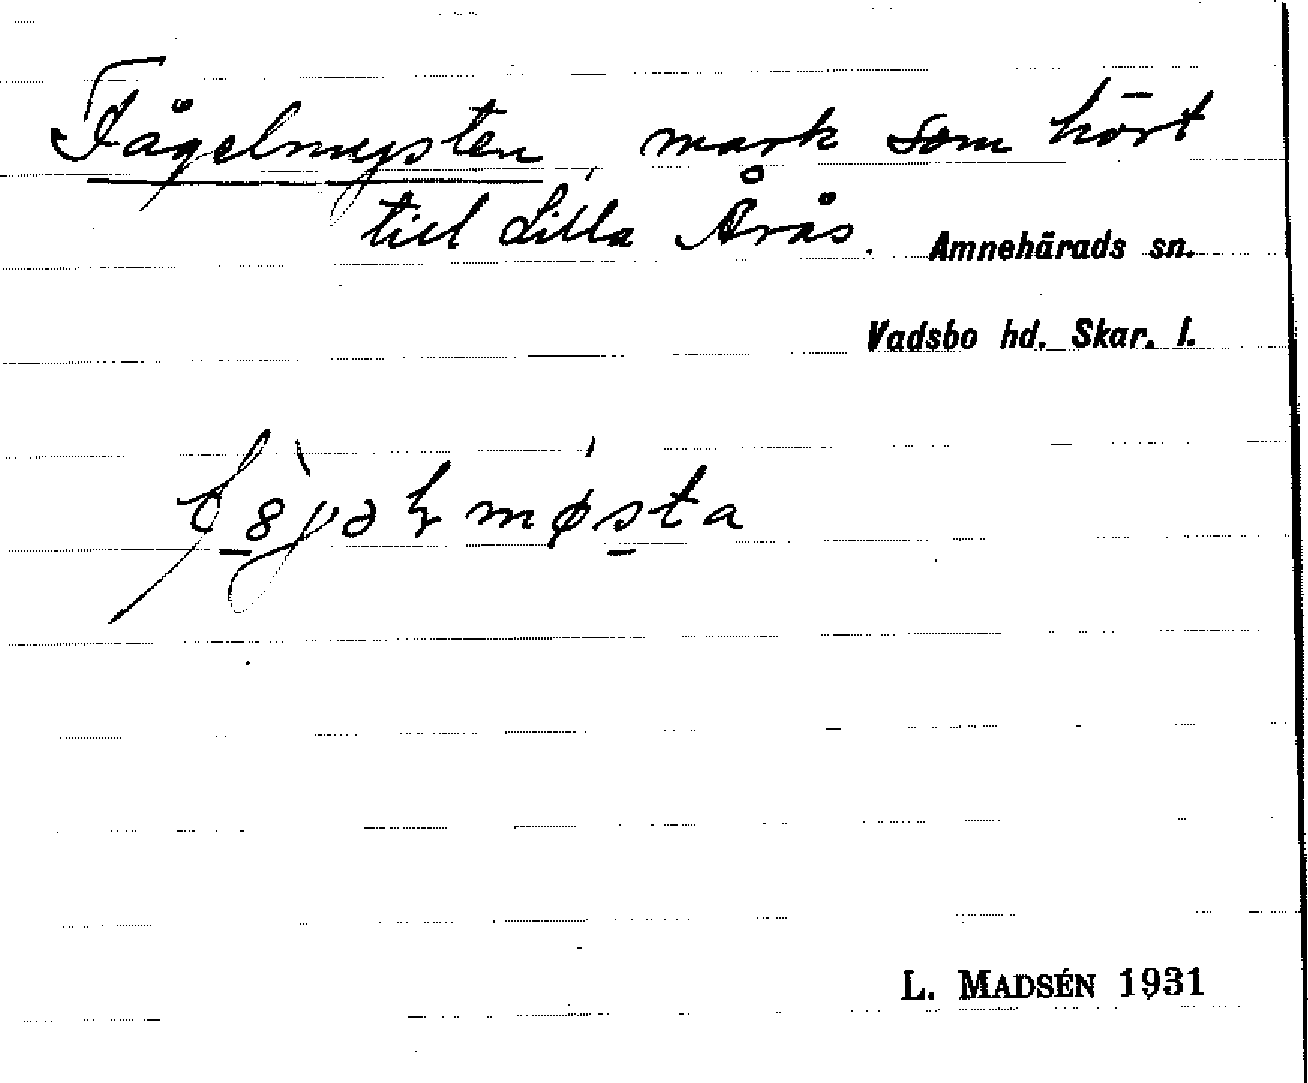 Fågelmysten, mark som hört
till Lilla Årås. Amnehärads sn.
Vadsbo hd. Skar. l.
L. MADSÉN 1931